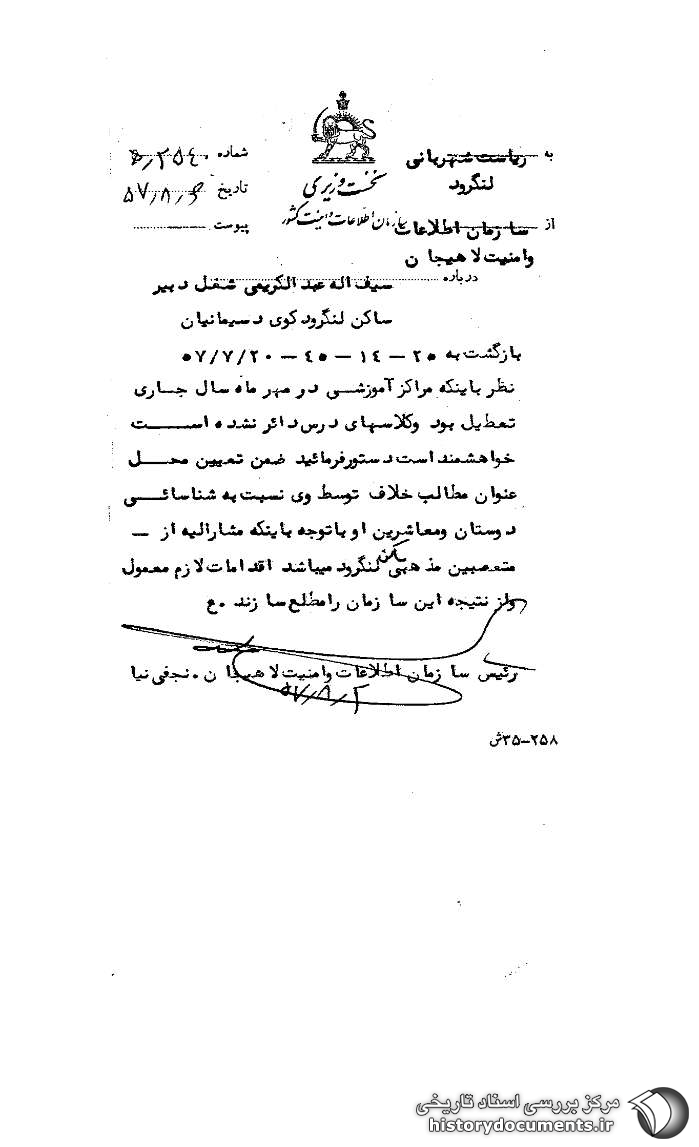 به ریاست شهربانی
لنگرود
از سازمان اطلاعات
وامنیت لاهیجان
نخست وزیری
سازمان اطلاعات و امنیت کشور
شماره
تاریخ
پیوست
درباره سیف اله عبدالکریمی شغل دبیر
ساکن لنگرود کوی دسیمانیان
بازگشت به ۲۵ – ۱۴ – ۴۵ – ۵۷/۷/۲۰
نظر باینکه مراکز آموزشی در مهر ماه سال جاری
تعطیل بود وکلاسهای درس دائر نشده است
خواهشمند است دستورفرمائید ضمن تعیین محل
عنوان مطالب خلاف توسط وی نسبت به شناسائی
دوستان ومعاشرین او باتوجه باینکه مشارالیه از –
متعصبین مذهبی ساکن لنگرود میباشد اقدامات لازم معمول
واز نتیجه این سازمان رامطلع سازند . ع
رئیس سازمان اطلاعات وامنیت لاهیجان . نجفی نیا
۵۷/۸/۲
۲۵۸–۳۵ش
مرکز بررسی اسناد تاریخی
historydocuments.ir